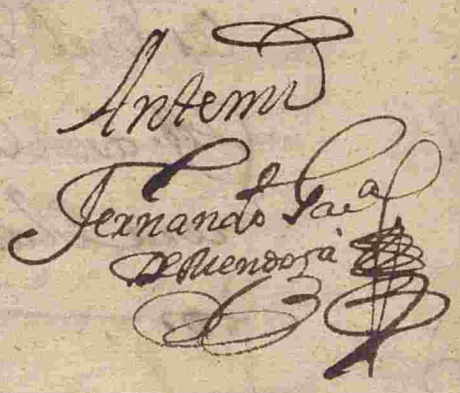 Ante mi
Fernando Gaa
De Mendosa